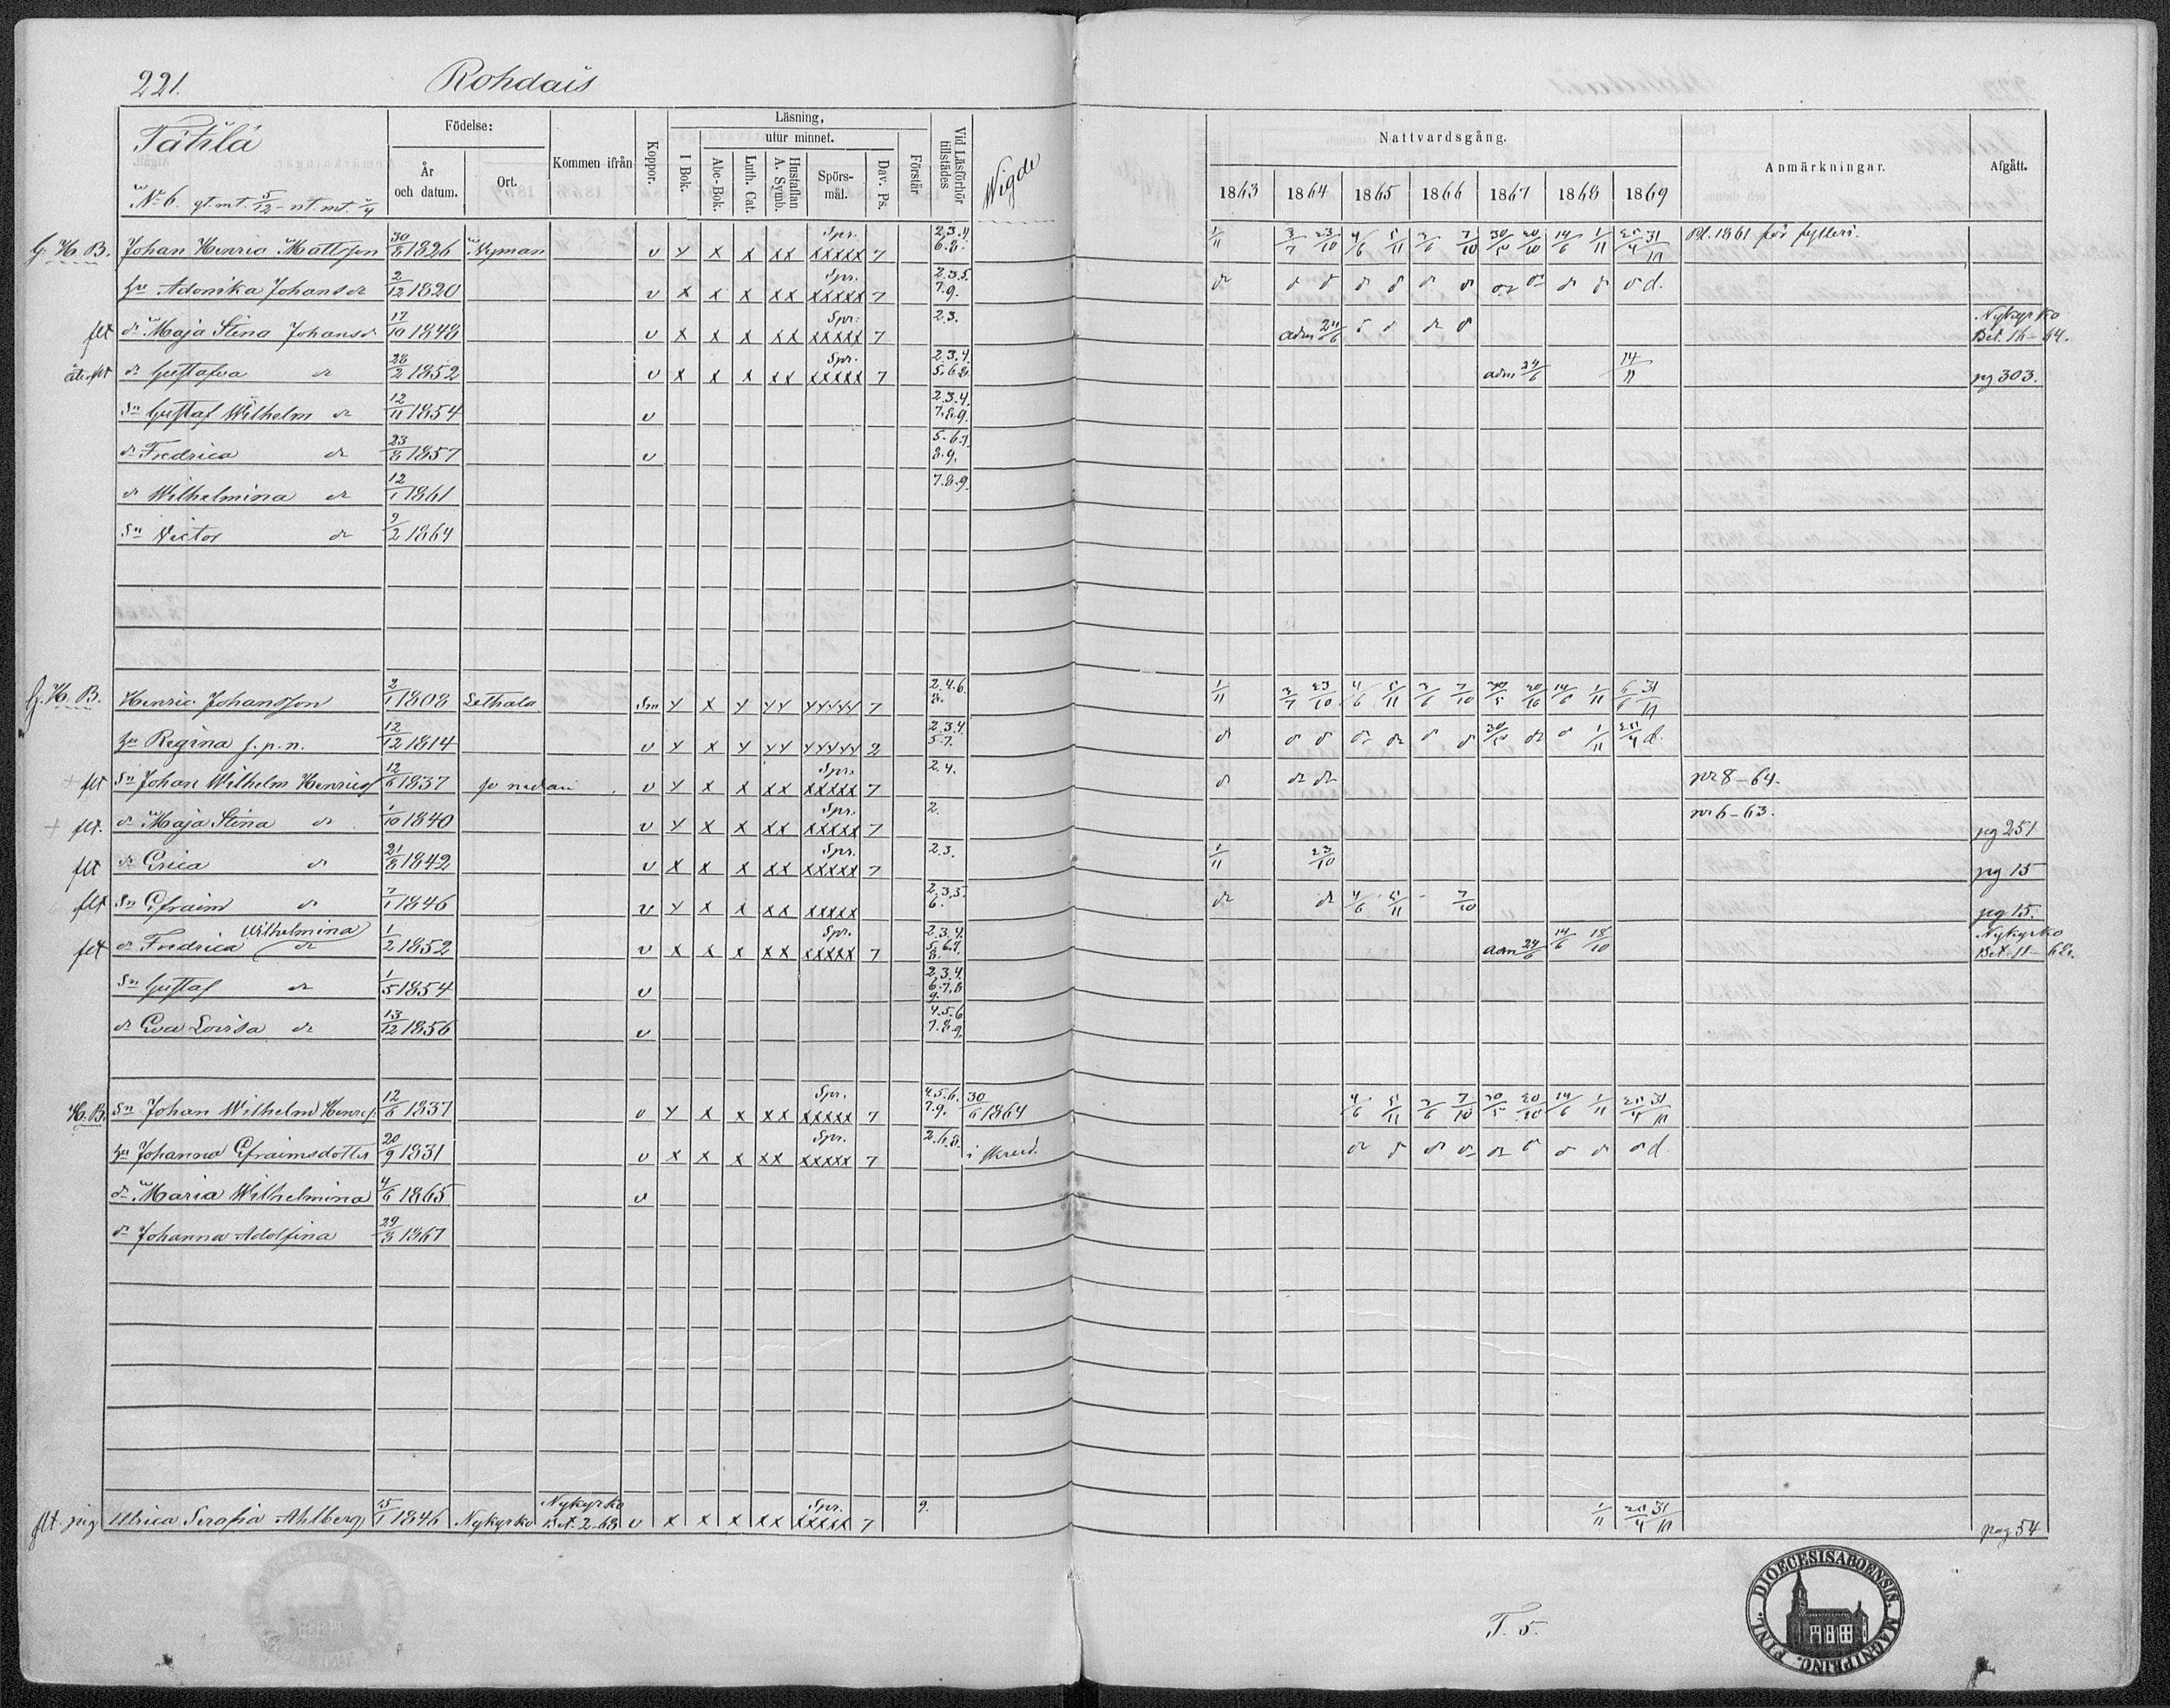 221. Rohdais
Tätilä
No 6. gt.mt. 5/12 – nt.mt. 1/4
Födelse: År och datum. Ort. Kommen ifrån Koppor. Läsning, I Bok. utur minnet. Abc-Bok. Luth. Cat. Hustaflan A. Symb. Spörsmål. Dav. Ps. Förstår Vid Läsförhör tillstädes Wigde
Nattvardsgång. 1863 1864 1865 1866 1867 1868 1869 Anmärkningar. Afgått.
G. H. B. Johan Henric Mattsson 30/8 1826 Nyman v Y X X XX Spr. XXXXX 7 2.3.4. 6.8. 1/11 3/7 23/10 4/6 5/11 3/6 7/10 30/5 20/10 14/6 1/11 25/4 31/10 Pl. 1861 för fylleri.
hu Adonika Johansdr 2/12 1820 v X X X XX Spr. XXXXX 7 2.3.5. 7.9. dr
flt dr Maja Stina Johansd 17/10 1848 v X X X XX Spr. XXXXX 7 2.3. adm 24/6 Nykyrko Bet. 16–64.
dr Gustafva dr 28/2 1852 v X X X XX Spr. XXXXX 7 2.3.4. 5.6.8. adm 24/6 14/11 pg 303.
sn Gustaf Wilhelm dr 12/11 1854 v 2.3.4. 7.8.9.
dr Fredrica dr 23/8 1857 v 5.6.7. 8.9.
dr Wilhelmina dr 12/1 1861 7.8.9.
sn Victor dr 9/2 1864
G. H. B. Henric Johansson 2/1 1808 Lethala Sm Y X Y YY YYYYY 7 2.4.6. 8. 1/11 3/7 23/10 4/6 5/11 3/6 7/10 30/5 20/10 14/6 1/11 6/6 31/10
hu Regina f.p.n. 12/12 1814 v Y X Y YY YYYYY 2 2.3.4. 5.7. dr 30/5 1/11 25/4 d.
+ flt sn Johan Wilhelm Henricss 12/6 1837 se nedan v Y X X XX Spr. XXXXX 7 2.4. dr dr dr pr 8–64.
+ flt. dr Maja Stina dr 1/10 1840 v Y X X XX Spr. XXXXX 7 2. pr 6–63. pg 251
flt dr Erica dr 21/8 1842 v X X X XX Spr. XXXXX 7 2.3. 1/11 23/10 pg 15
flt sn Efraim dr 7/1 1846 v Y X X XX XXXXX 2.3.5. 6. dr dr 4/6 5/11 7/10 pg 15.
flt dr Fredrica Wilhelmina dr 1/2 1852 v X X X XX Spr. XXXXX 7 2.3.4. 5.6.7. 8. adm 24/6 14/6 18/10 Nykyrko Bet. 11–68.
sn Gustaf dr 1/5 1854 v 2.3.4. 6.7.8. 9.
dr Eva Lovisa dr 13/12 1856 v 4.5.6. 7.8.9.
H. B. sn Johan Wilhelm Henricss 12/6 1837 v Y X X XX Spr. XXXXX 7 4.5.6. 7.9. 30/6 1864 4/6 5/11 3/6 7/10 30/5 20/10 14/6 1/11 25/4 31/10
hu Johanna Efraimsdotter 20/9 1831 v X X X XX Spr. XXXXX 7 2.6.8.
dr Maria Wilhelmina 4/6 1865 v
dr Johanna Adolfina 29/8 1867
flt pig Ulrica Serafia Ahlberg 15/1 1846 Nykyrko Nykyrko Bet. 2–68 v X X X XX Spr. XXXXX 7 9. 1/11 25/4 31/10 pag 54
T. 5.
DIOECESIS ABOENSIS. MAGNI PRINC. FINL.